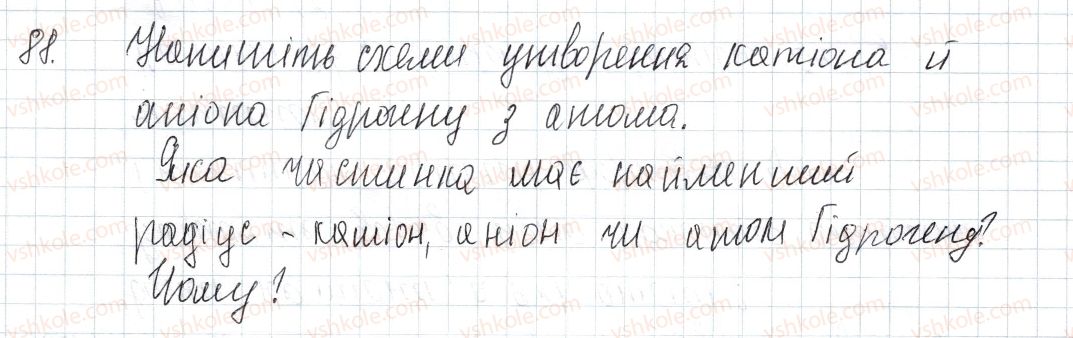 88. Напишіть схеми утворення катіона й
аніона Гідрогену з атома.
Яка частинка має найменший
радіус - катіон, аніон чи атом Гідрогену?
Чому?